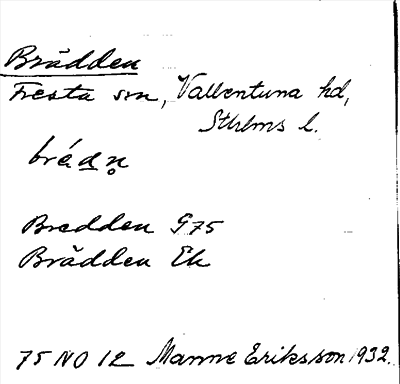 Brädden
Fresta sn, Vallentuna hd,
Sthlms l.
brédn̥
Bredden G75
Brädden Ek
75 NO 12 Manne Eriksson 1932.